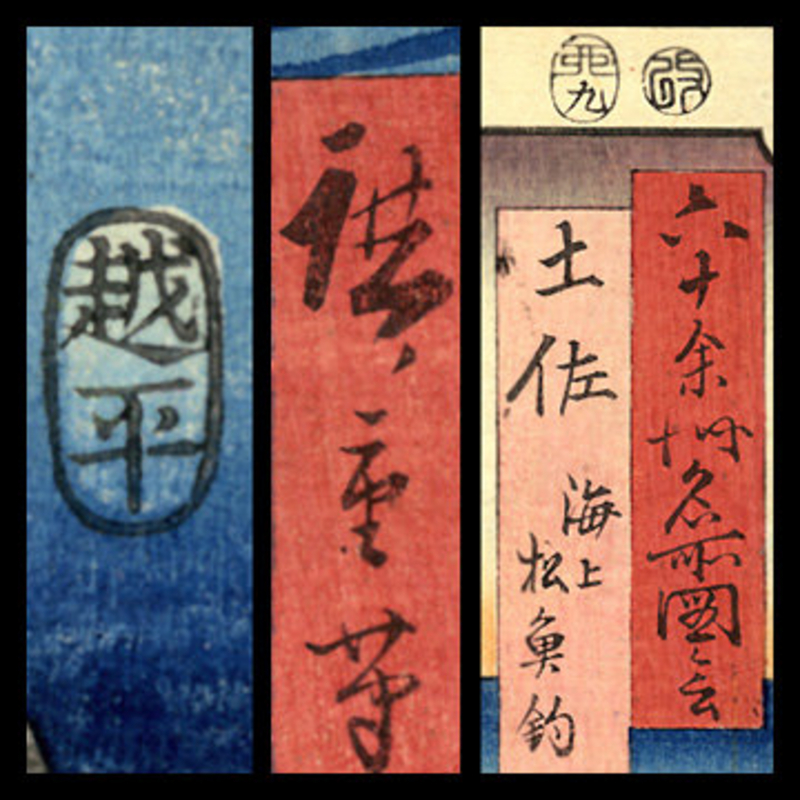 越平
廣重筆
改
卯九
六十余州名所圖会
土佐
海上
松魚釣